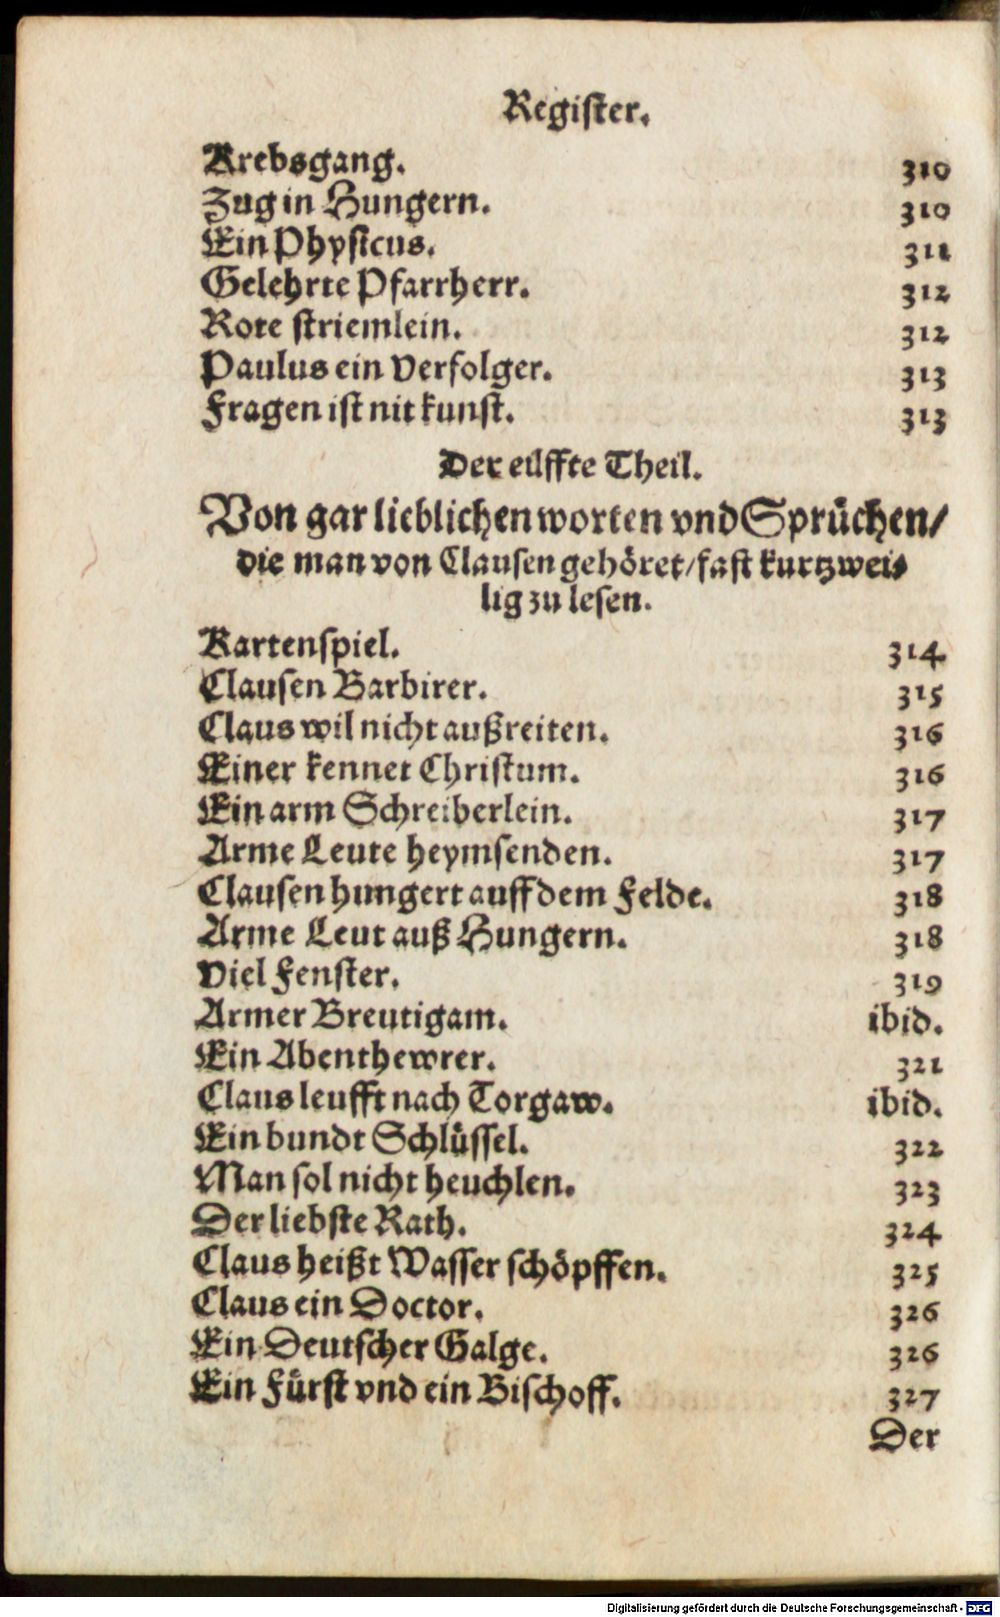 Register.
Krebsgang. 310
Zug in Hungern. 310
Ein Physicus. 311
Gelehrte Pfarrherr. 312
Rote striemlein. 312
Paulus ein Verfolger. 313
Fragen ist nit kunst. 313
Der eilffte Theil.
Von gar lieblichen worten vnd Sprüchen/
die man von Clausen gehöret/ fast kurtzwei-
lig zu lesen.
Kartenspiel. 314
Clausen Barbirer. 315
Claus wil nicht außreiten. 316
Einer kennet Christum. 316
Ein arm Schreiberlein. 317
Arme Leute heymsenden. 317
Clausen hungert auff dem Felde. 318
Arme Leut auß Hungern. 318
Viel Fenster. 319
Armer Breutigam. ibid.
Ein Abenthewrer. 321
Claus leufft nach Torgaw. ibid.
Ein bundt Schlüssel. 322
Man sol nicht heuchlen. 323
Der liebste Rath. 324
Claus heißt Wasser schöpffen. 325
Claus ein Doctor. 326
Ein Deutscher Galge. 326
Ein Fürst vnd ein Bischoff. 327
Der
Digitalisierung gefördert durch die Deutsche Forschungsgemeinschaft - DFG